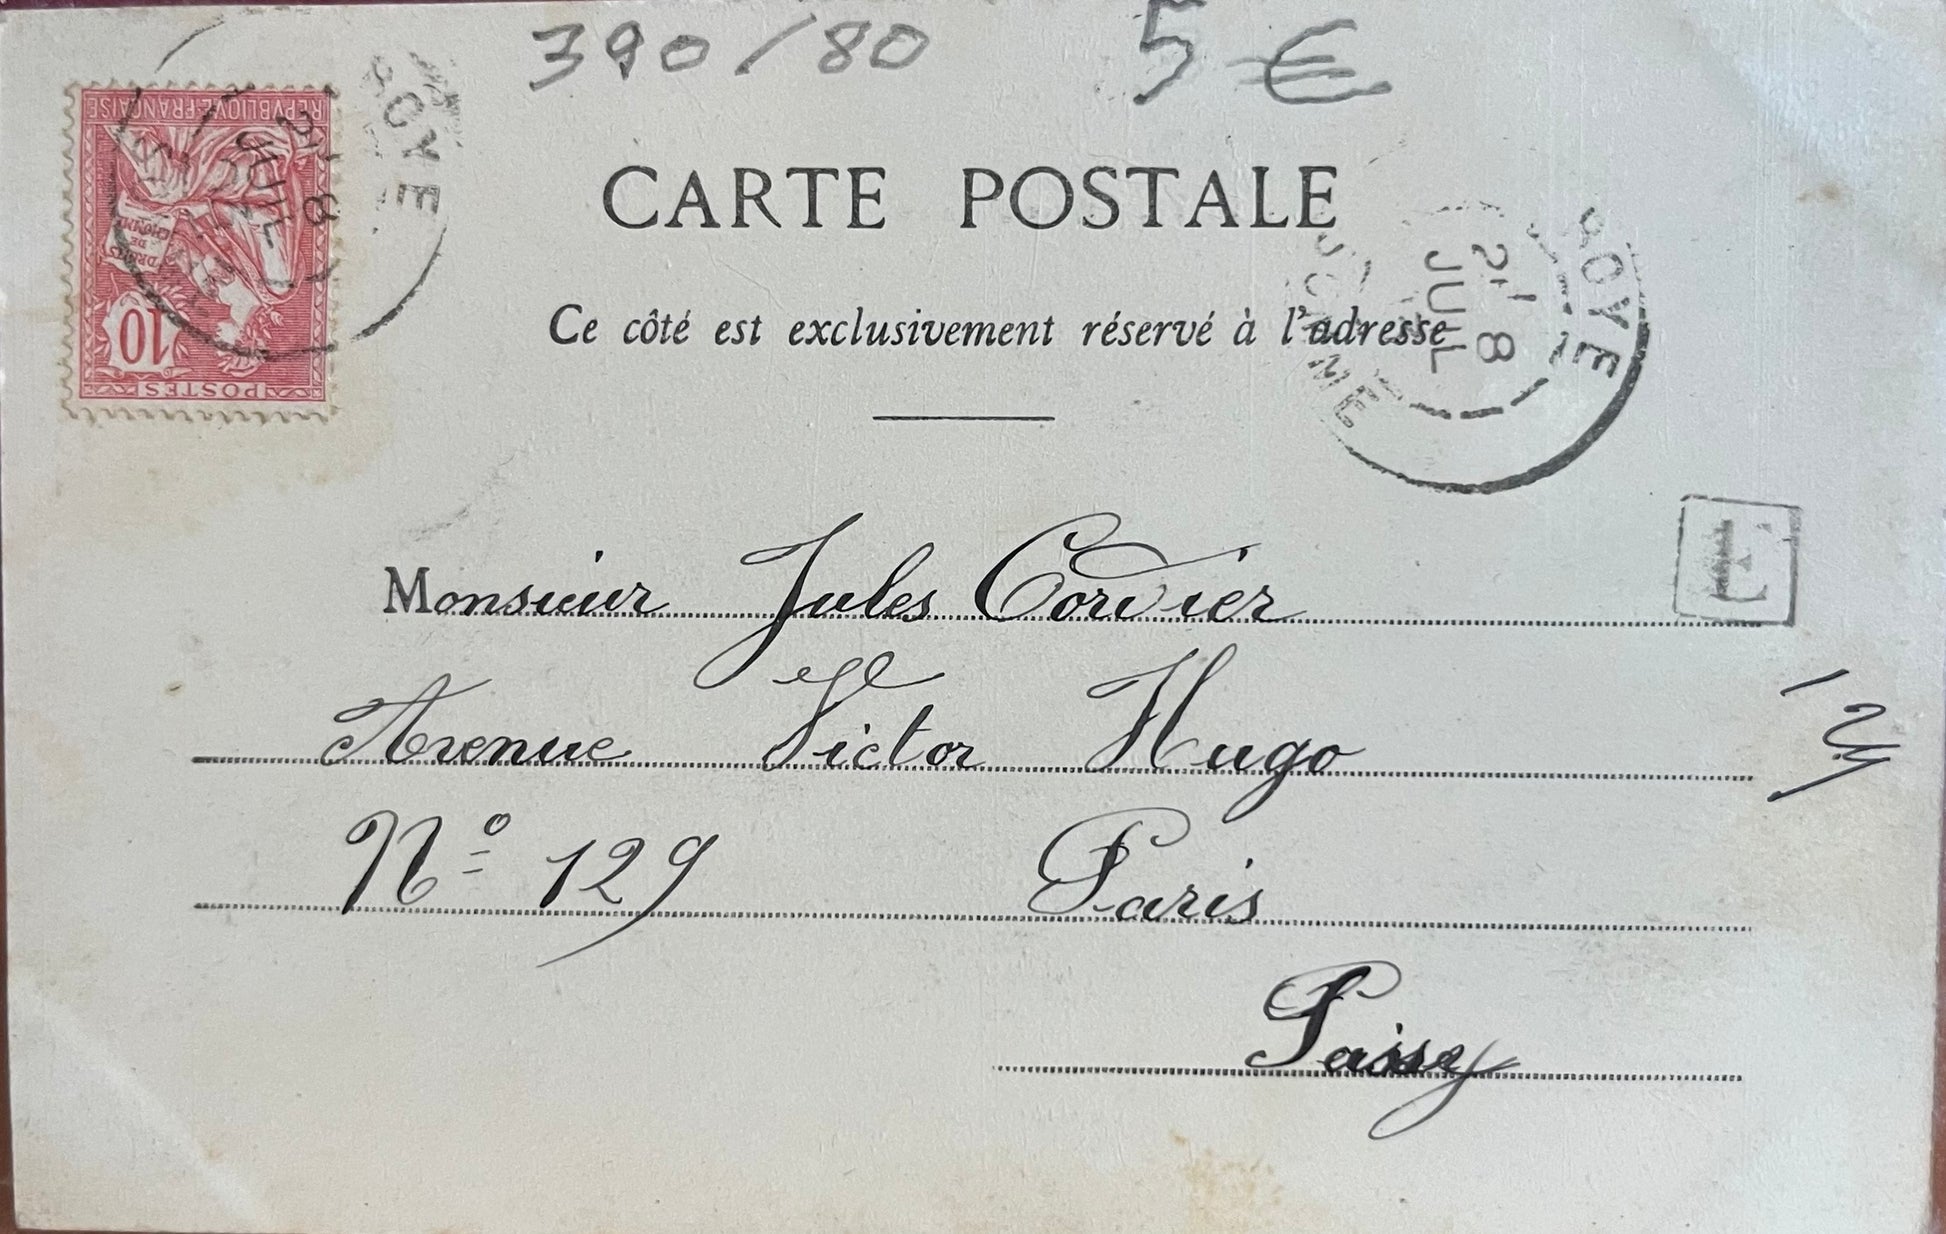 390/80 5 €
REPVBLIQVE FRANÇAISE
DROITS
DE
L'HOMME
10
POSTES
ROYE
8
JUIL
CARTE POSTALE
ROYE
8
JUIL
SOMME
Ce côté est exclusivement réservé à l'adresse
E
Monsieur Jules Cordier
Avenue Victor Hugo
N° 129 Paris
Passy